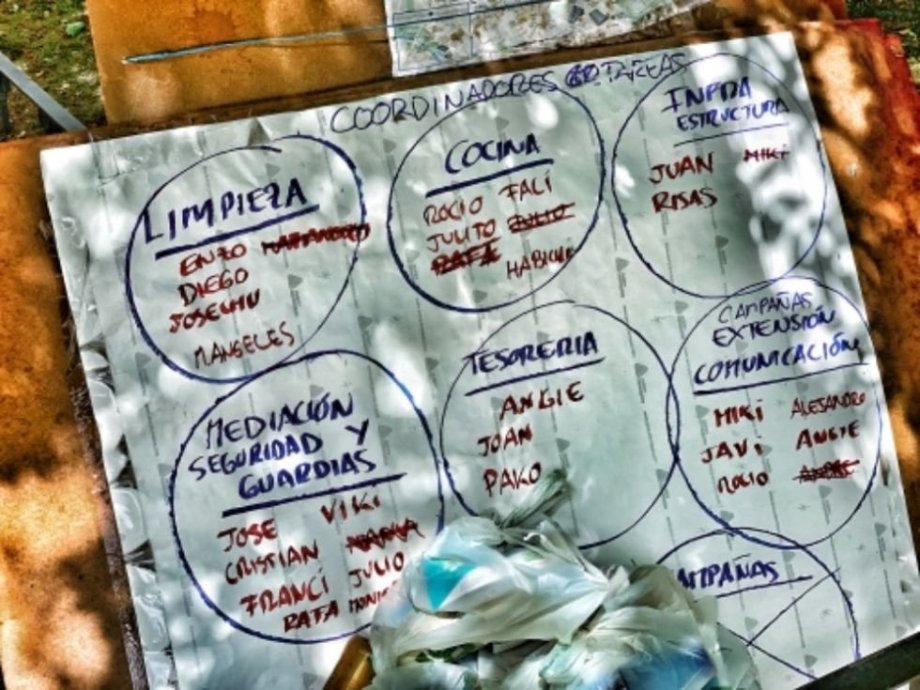 COORDINADORES DE TAREAS
LIMPIEZA
ENZO
DIEGO
JOSECHU
MANGELES
COCINA
ROCIO FALI
JULITO JULIO
RAFA HABICHU
INFRA
ESTRUCTURA
JUAN MIKI
RISAS
MEDIACIÓN
SEGURIDAD Y
GUARDIAS
JOSE VIKI
CRISTIAN
FRANCI JULIO
RAFA
TESORERIA
ANGIE
JUAN
PAKO
CAMPAÑAS
EXTENSIÓN
COMUNICACIÓN
MIKI ALEJANDRO
JAVI ANGIE
ROCIO
MPAÑAS